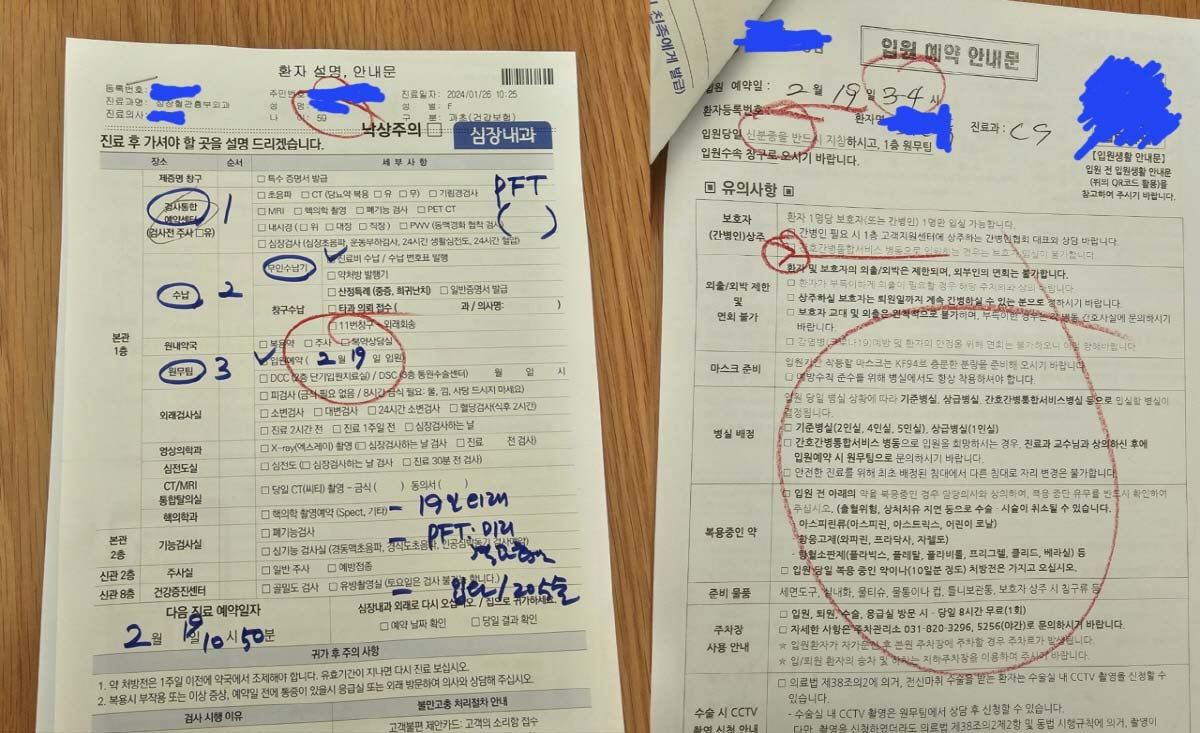 환자 설명, 안내문
등록번호:
주민번호
진료일자: 2024/01/26 10:25
진료과명: 심장혈관흉부외과
성 명:
성 별: F
진료의사:
나 이: 59
구 분: 과초(건강보험)
낙상주의 □
심장내과
진료 후 가셔야 할 곳을 설명 드리겠습니다.
장소 순서 세 부 사 항
본관 1층
제증명 창구
□ 특수 증명서 발급
검사통합 예약센터
(검사전 주사 □유)
1
□ 초음파 □ CT (당뇨약 복용 □ 유 □ 무) □ 기립경검사
□ MRI □ 핵의학 촬영 □ 폐기능 검사 □ PET CT
□ 내시경 ( □ 위 □ 대장 □ 직장 ) □ PWV (동맥경화 협착 검사)
□ 심장검사 (심장초음파, 운동부하검사, 24시간 생활심전도, 24시간 혈압)
PFT
( )
수납
2
무인수납기
□ 진료비 수납 / 수납 번호표 발행
□ 약처방 발행기
창구수납
□ 산정특례 (중증, 희귀난치) □ 일반증명서 발급
□ 타과 의뢰 접수 ( 과 / 의사명: )
□ 11번창구 - 외래회송
원내약국
□ 복용약 □ 주사 □ 복약상담실
원무팀
3
입원예약 ( 2 월 19 일 입원)
□ DCC (2층 단기입원치료실) / DSC (3층 통원수술센터) 월 일 시
외래검사실
□ 피검사 (금식 필요 없음 / 8시간 금식 필요: 물, 껌, 사탕 드시지 마세요)
□ 소변검사 □ 대변검사 □ 24시간 소변검사 □ 혈당검사(식후 2시간)
□ 진료 2시간 전 □ 진료 1주일 전 □ 심장검사하는 날
영상의학과
□ X-ray(엑스레이) 촬영 (□ 심장검사하는 날 검사 □ 진료 전 검사)
심전도실
□ 심전도 (□ 심장검사하는 날 검사 □ 진료 30분 전 검사)
CT/MRI 통합탈의실
□ 당일 CT(씨티) 촬영 - 금식 ( ) 동의서 ( )
핵의학과
□ 핵의학 촬영예약 (Spect, 기타)
- 19일 외래
본관 2층
기능검사실
□ 폐기능검사
□ 심기능 검사실 (경동맥초음파, 경식도초음파, 인공심박동기 검사예약)
- PFT: 미리
신관 2층
주사실
□ 일반 주사 □ 예방접종
신관 8층
건강증진센터
□ 골밀도 검사 □ 유방촬영실 (토요일은 검사 불가능 합니다.)
- 입원 / 20수술
다음 진료 예약일자
2 월 19 일 10 시 50 분
심장내과 외래로 다시 오십시오. / 집으로 귀가하세요.
□ 예약 날짜 확인 □ 당일 결과 확인
귀가 후 주의 사항
1. 약 처방전은 1주일 이전에 약국에서 조제해야 합니다. 유효기간이 지나면 다시 진료 보십시오.
2. 복용시 부작용 또는 이상 증상, 예약일 전에 통증이 있을시 응급실 또는 외래 방문하여 의사와 상담해 주십시오.
검사 시행 이유
불만고충 처리절차 안내
고객불편 제안카드: 고객의 소리함 접수
친족에게 발급)
입원 예약 안내문
입원 예약일 : 2 월 19 일 3-4 시
환자등록번호
환자명
진료과 : CS
입원당일 신분증을 반드시 지참하시고, 1층 원무팀
입원수속 창구로 오시기 바랍니다.
【입원생활 안내문】
입원 전 입원생활 안내문
(뒤의 QR코드 활용)을
참고하여 주시기 바랍니다.
▣ 유의사항 ▣
보호자 (간병인)상주
환자 1명당 보호자(또는 간병인) 1명만 입실 가능합니다.
□ 간병인 필요 시 1층 고객지원센터에 상주하는 간병인협회 대표와 상담 바랍니다.
□ 간호간병통합서비스 병동으로 입원하는 경우는 보호자 입실이 불가합니다.
외출/외박 제한 및 면회 불가
환자 및 보호자의 외출/외박은 제한되며, 외부인의 면회는 불가합니다.
□ 환자가 부득이하게 외출이 필요할 경우 해당 주치의와 상의 바랍니다.
□ 상주하실 보호자는 퇴원일까지 계속 간병하실 수 있는 분으로 정하시기 바랍니다.
□ 보호자 교대 및 외출은 원칙적으로 불가하며, 부득이한 경우는 각 병동 간호사실에 문의하시기
바랍니다.
□ 감염병(코로나19)예방 및 환자의 안정을 위해 면회는 불가하오니 이점 양해바랍니다.
마스크 준비
입원기간 착용할 마스크는 KF94로 충분한 분량을 준비해 오시기 바랍니다.
□ 예방수칙 준수를 위해 병실에서도 항상 착용하셔야 합니다.
병실 배정
입원 당일 병실 상황에 따라 기준병실, 상급병실, 간호간병통합서비스병동 등으로 입실할 병실이
결정됩니다.
□ 기준병실(2인실, 4인실, 5인실), 상급병실(1인실)
□ 간호간병통합서비스 병동으로 입원을 희망하시는 경우, 진료과 교수님과 상의하신 후에
입원예약 시 원무팀으로 문의하시기 바랍니다.
□ 안전한 진료를 위해 최초 배정된 침대에서 다른 침대로 자리 변경은 불가합니다.
복용중인 약
□ 입원 전 아래의 약을 복용중인 경우 담당의사와 상의하여, 복용 중단 유무를 반드시 확인하여
주십시오. (출혈위험, 상처치유 지연 등으로 수술 · 시술이 취소될 수 있습니다.)
아스피린류(아스피린, 아스트릭스, 어린이 로날)
항응고제(와파린, 프라닥사, 자렐토)
- 항혈소판제(플라빅스, 플레탈, 플라비톨, 프리그렐, 클리드, 베라실) 등
□ 입원 당일 복용 중인 약이나(10일분 정도) 처방전은 가지고 오십시오.
준비 물품
세면도구, 실내화, 물티슈, 물통이나 컵, 틀니보관통, 보호자 상주 시 침구류 등
주차장 사용 안내
□ 입원, 퇴원, 수술, 응급실 방문 시 - 당일 8시간 무료(1회)
□ 자세한 사항은 주차관리소 031-820-3296, 5256(야간)로 문의하시기 바랍니다.
※ 입원환자가 자가운전 후 본원 주차장에 주차할 경우 주차료가 발생됩니다.
※ 입/퇴원 환자의 승차 및 하차는 지하주차장을 이용하여 주시기 바랍니다.
수술 시 CCTV 촬영 신청 안내
□ 의료법 제38조의2에 의거, 전신마취 수술을 받는 환자는 수술실 내 CCTV 촬영을 신청할 수
있습니다.
- 수술실 내 CCTV 촬영은 원무팀에서 상담 후 신청할 수 있습니다.
다만, 촬영을 신청하였더라도 의료법 제38조의2제2항 및 동법 시행규칙에 의거, 촬영이